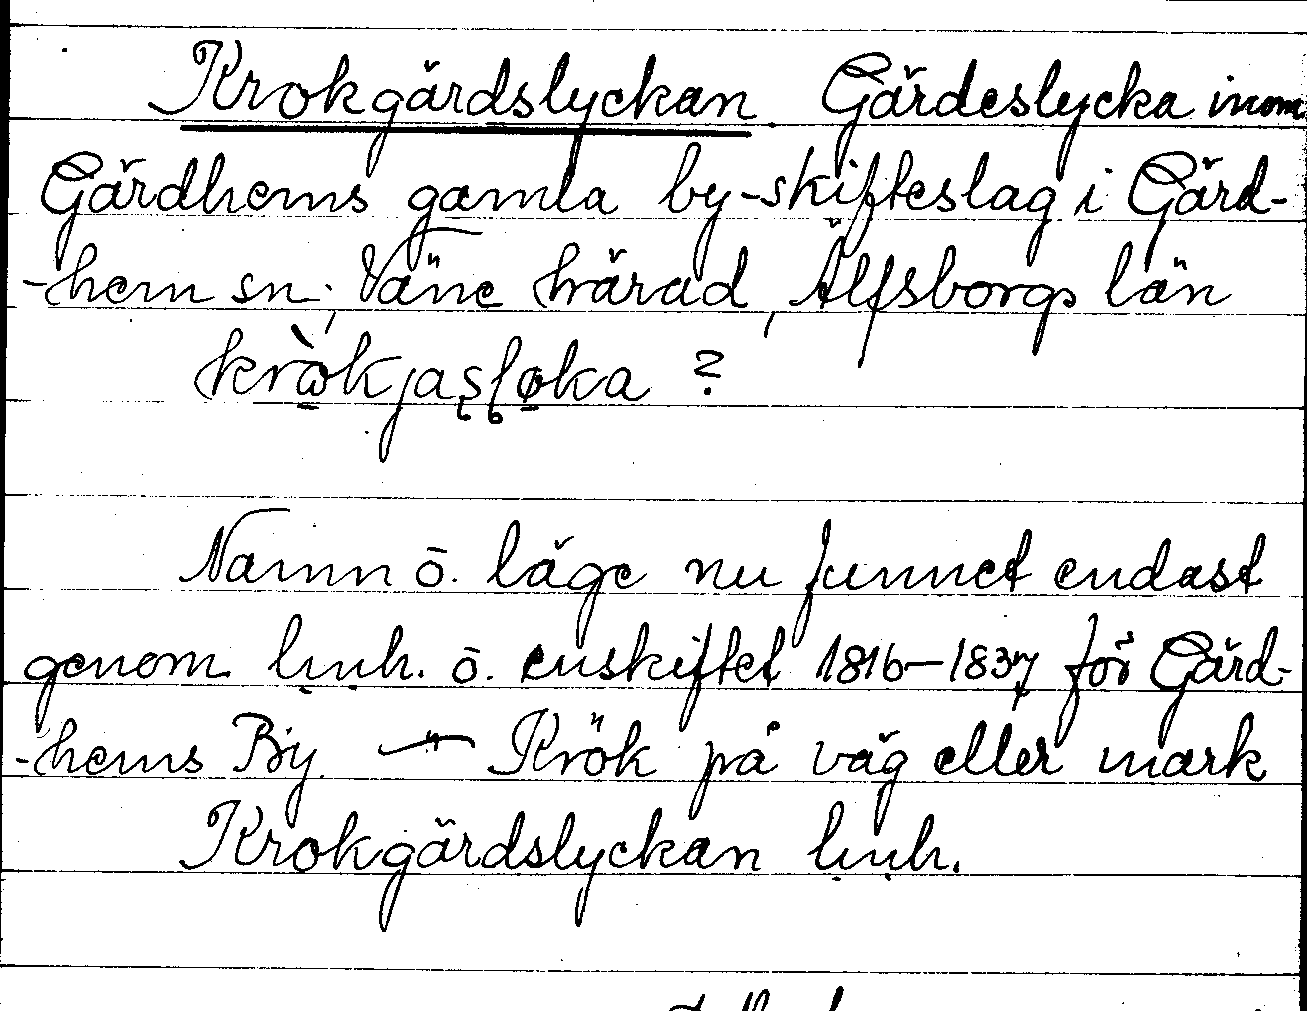 Krokgärdslyckan. Gärdeslycka inom
Gärdhems gamla by-skifteslag i Gärd-
-hem sn; Väne härad, Älfsborgs län
kròkjasloka ?
Namn ō. läge nu funnet endast
genom ō. enskiftet 1816–1837 för Gärd-
-hems By. — " — Krök på väg eller mark
Krokgärdslyckan